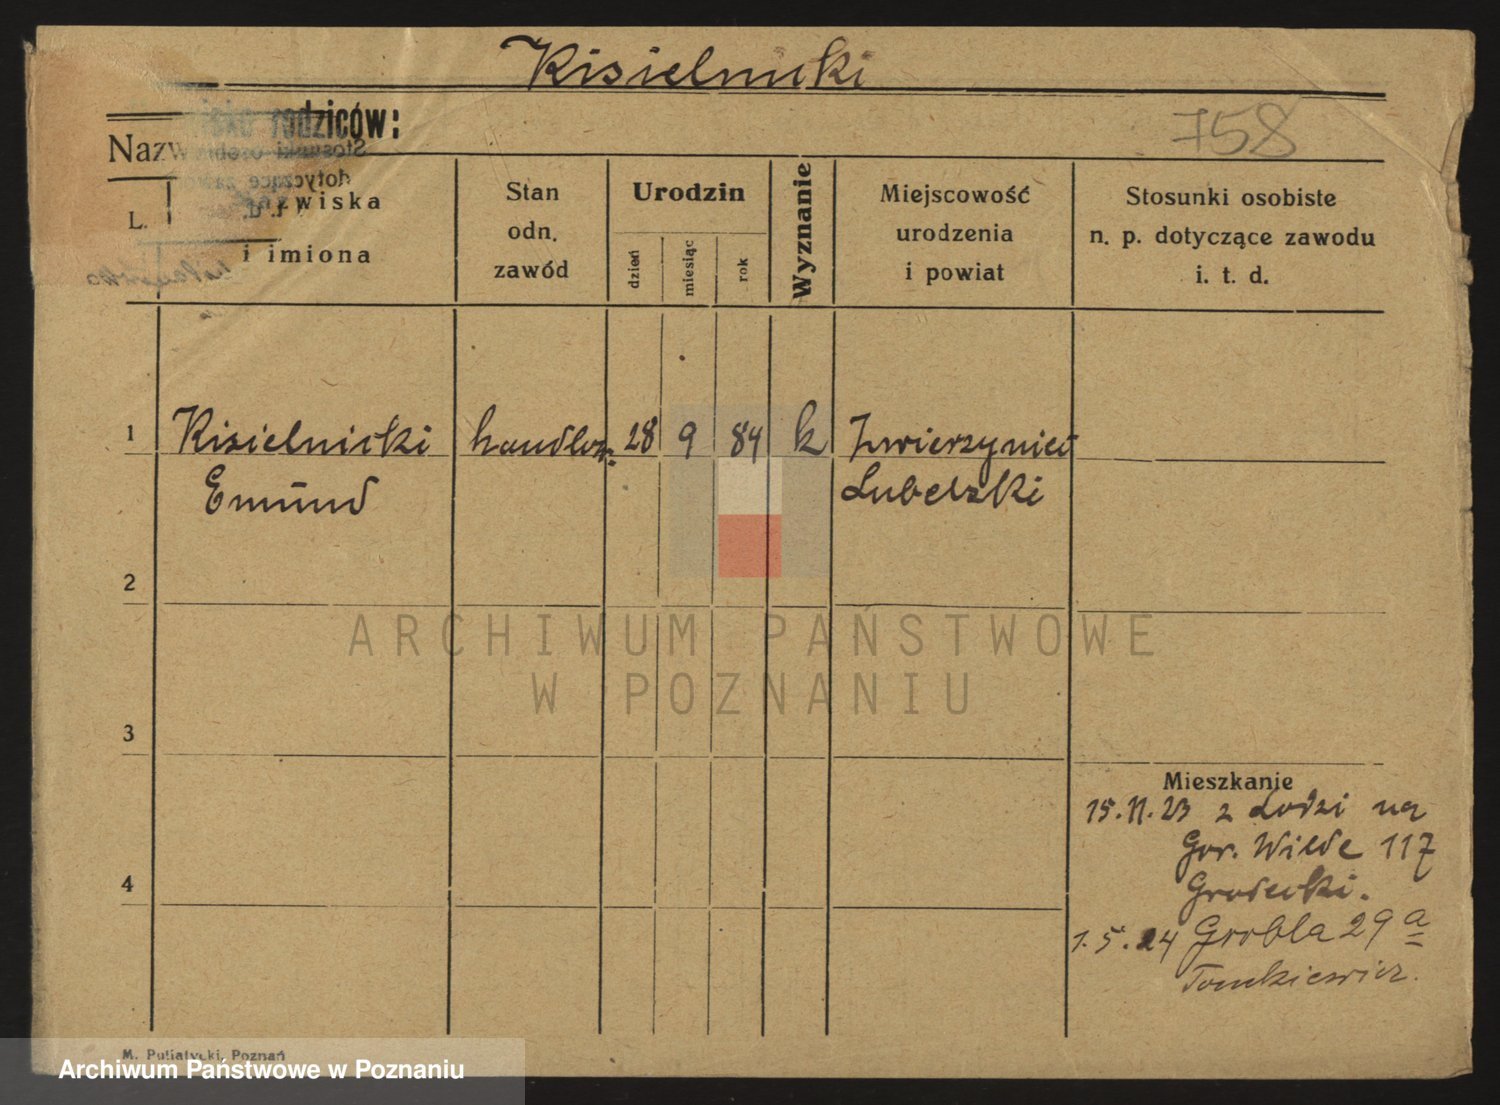 Kisielnicki
758
Nazwisko rodziców:
L.
Nazwiska
i imiona
Stan
odn.
zawód
Urodzin
dzień
miesiąc
rok
Wyznanie
Miejscowość
urodzenia
i powiat
Stosunki osobiste
n. p. dotyczące zawodu
i. t. d.
1
Kisielnicki
Emund
handlow.
28
9
84
k
Zwierzyniec
Lubelski
2
ARCHIWUM PAŃSTWOWE
W POZNANIU
3
4
Mieszkanie
15.11.23 z Lodzi na
Gor. Wilde 117
Grodecki.
1.5.24 Grobla 29 a
Tomkiewicz.
M. Putiatycki, Poznań
Archiwum Państwowe w Poznaniu